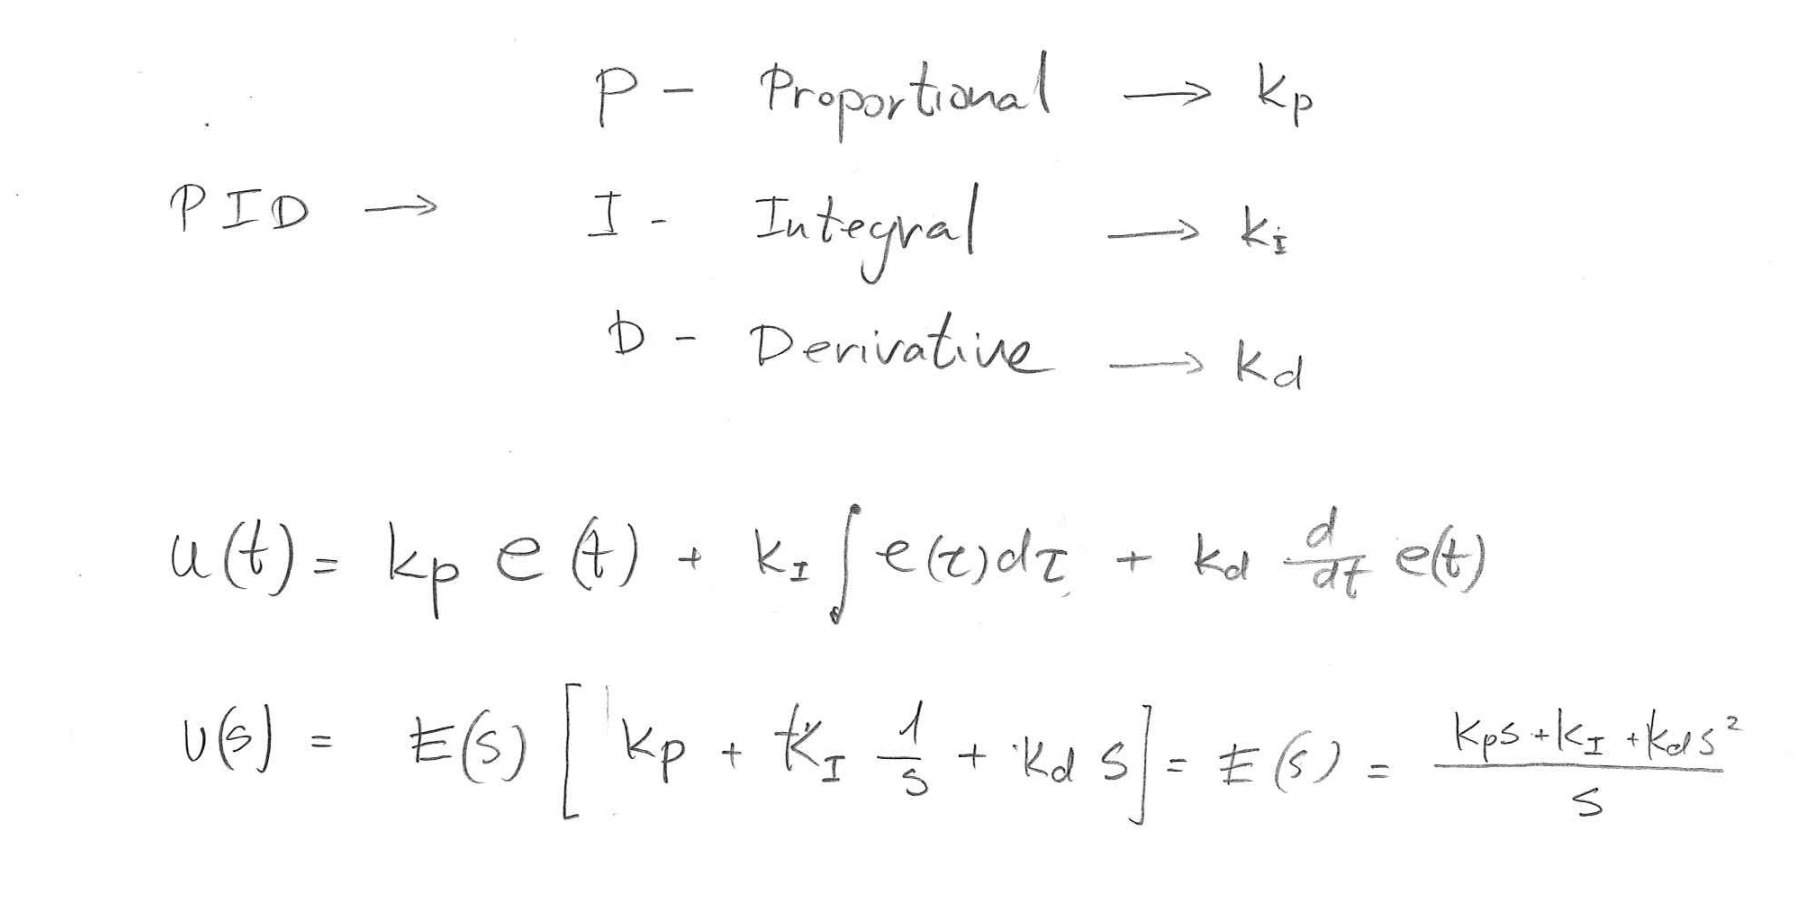 P - Proportional → kp
PID → I - Integral → kI
D - Derivative → kd
u(t) = kp e(t) + kI ∫ e(τ)dτ + kd d/dt e(t)
U(s) = E(s) [ kp + kI 1/s + kd s ] = E(s) = (kps + kI + kds²)/s